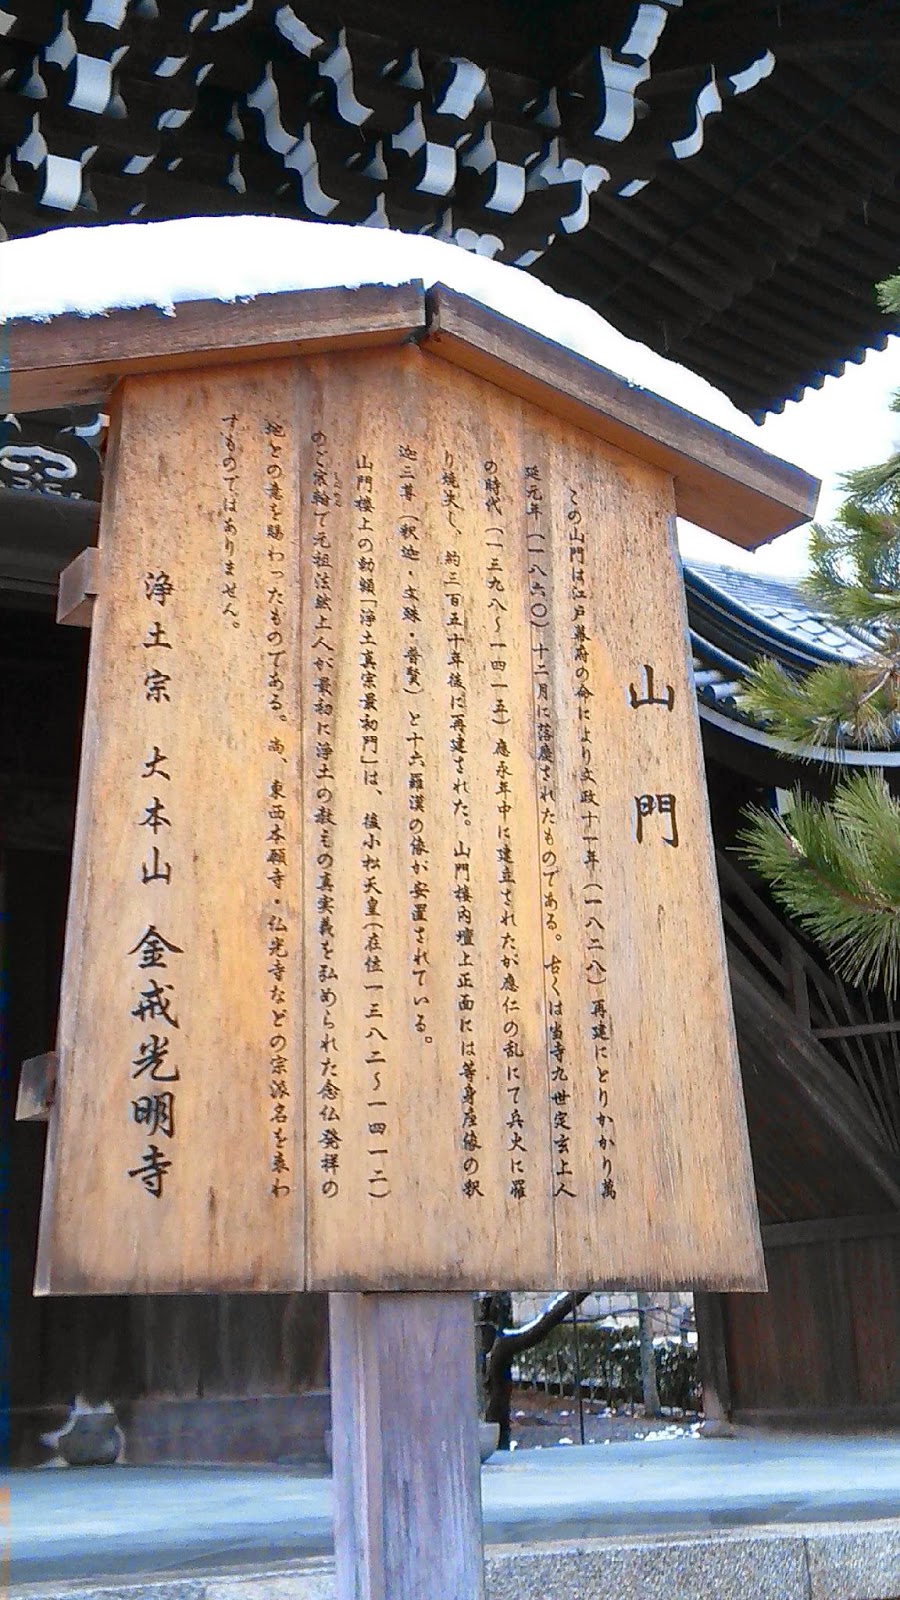 山門
この山門は江戸幕府の命により文政十一年(一八二八)再建にとりかかり萬
延元年(一八六〇)十二月に落慶されたものである。古くは当寺九世定玄上人
の時代(一三九八〜一四一五)應永年中に建立されたが應仁の乱にて兵火に罹
り焼失し、約三百五十年後に再建された。山門楼内壇上正面には等身座像の釈
迦三尊(釈迦・文殊・普賢)と十六羅漢の像が安置されている。
山門楼上の勅額「浄土真宗最初門」は、後小松天皇(在位一三八二〜一四一二)
のご宸翰で元祖法然上人が最初に浄土の教えの真実義を弘められた念仏発祥の
地との意を賜わったものである。尚、東西本願寺・仏光寺などの宗派名を表わ
すものではありません。
浄土宗 大本山 金戒光明寺